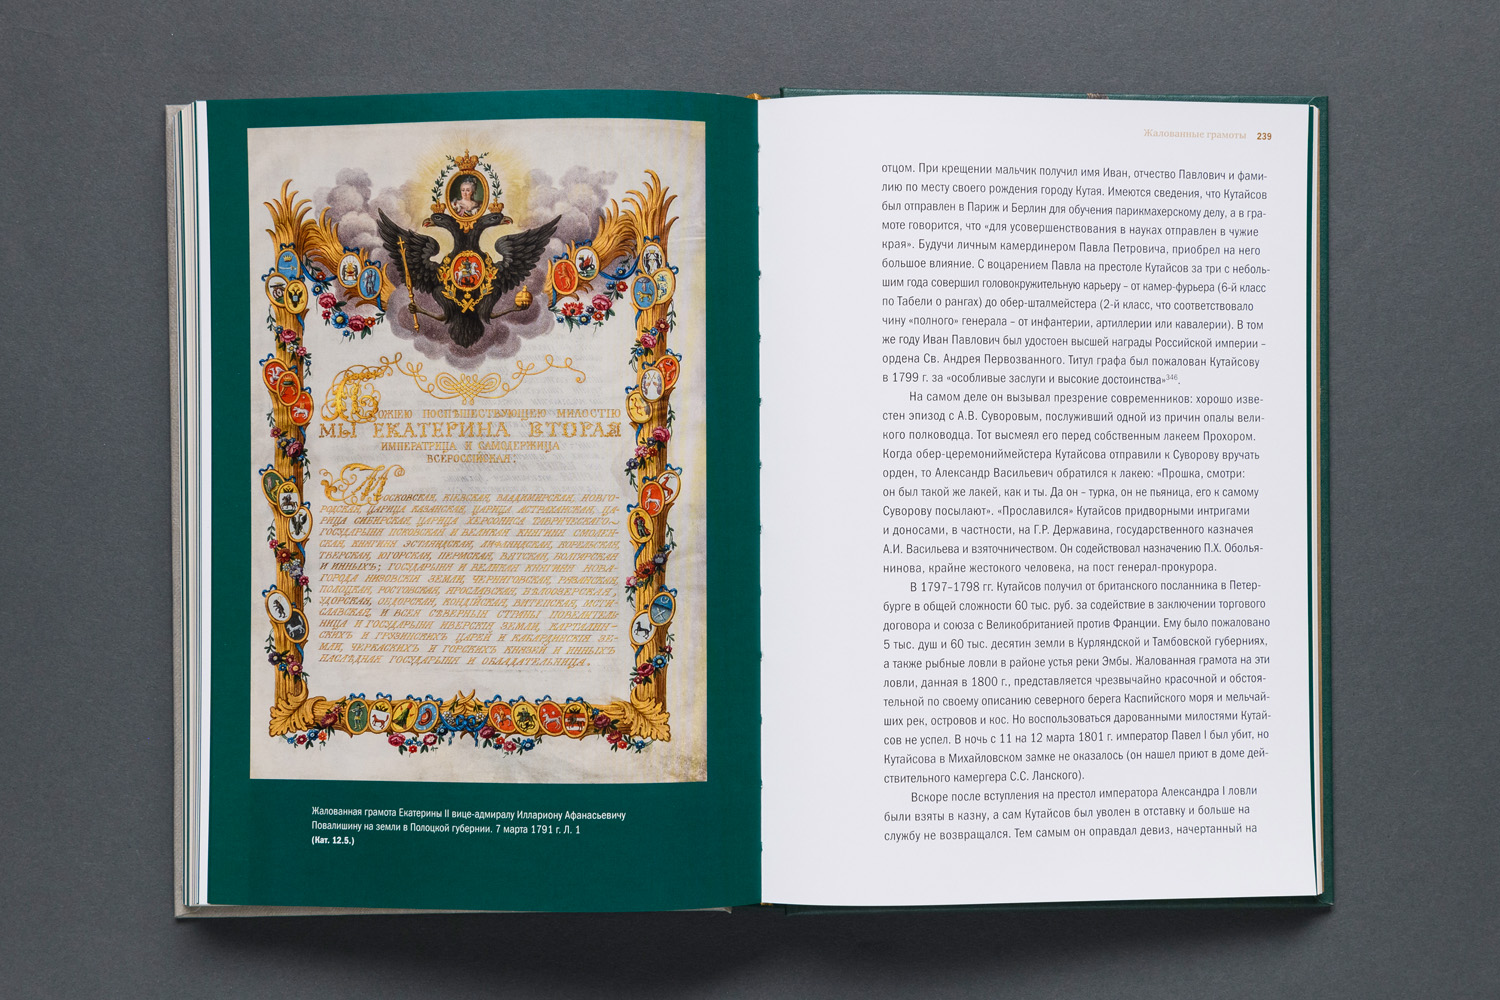 БОЖІЕЮ ПОСПѢШЕСТВУЮЩЕЮ МИЛОСТІЮ
МЫ ЕКАТЕРИНА ВТОРАЯ
ИМПЕРАТРИЦА И САМОДЕРЖИЦА
ВСЕРОССІЙСКАЯ:
МОСКОВСКАЯ, КІЕВСКАЯ, ВЛАДИМИРСКАЯ, НОВГО-
РОДСКАЯ, ЦАРИЦА КАЗАНСКАЯ, ЦАРИЦА АСТРАХАНСКАЯ, ЦА-
РИЦА СИБИРСКАЯ, ЦАРИЦА ХЕРСОНИСА ТАВРИЧЕСКАГО
ГОСУДАРЫНЯ ПСКОВСКАЯ И ВЕЛИКАЯ КНЯГИНЯ СМОЛЕН-
СКАЯ, КНЯГИНЯ ЭСТЛЯНДСКАЯ, ЛИФЛЯНДСКАЯ, КОРЕЛЬСКАЯ,
ТВЕРСКАЯ, ЮГОРСКАЯ, ПЕРМСКАЯ, ВЯТСКАЯ, БОЛГАРСКАЯ
И ИННЫХЪ; ГОСУДАРЫНЯ И ВЕЛИКАЯ КНЯГИНЯ НОВА-
ГОРОДА НИЗОВСКІЯ ЗЕМЛИ, ЧЕРНИГОВСКАЯ, РЯЗАНСКАЯ,
ПОЛОЦКАЯ, РОСТОВСКАЯ, ЯРОСЛАВСКАЯ, БѢЛООЗЕРСКАЯ,
УДОРСКАЯ, ОБДОРСКАЯ, КОНДІЙСКАЯ, ВИТЕПСКАЯ, МСТИ-
СЛАВСКАЯ, И ВСЕЯ СѢВЕРНЫЯ СТРАНЫ ПОВЕЛИТЕЛЬ
НИЦА И ГОСУДАРЫНЯ ИВЕРСКІЯ ЗЕМЛИ, КАРТАЛИН-
СКИХЪ И ГРУЗИНСКИХЪ ЦАРЕЙ И КАБАРДИНСКІЯ ЗЕ-
МЛИ, ЧЕРКАСКИХЪ И ГОРСКИХЪ КНЯЗЕЙ И ИННЫХЪ
НАСЛѢДНАЯ ГОСУДАРЫНЯ И ОБЛАДАТЕЛЬНИЦА.
Жалованная грамота Екатерины II вице-адмиралу Иллариону Афанасьевичу
Повалишину на земли в Полоцкой губернии. 7 марта 1791 г. Л. 1
(Кат. 12.5.)
Жалованные грамоты 239
отцом. При крещении мальчик получил имя Иван, отчество Павлович и фами-
лию по месту своего рождения городу Кутая. Имеются сведения, что Кутайсов
был отправлен в Париж и Берлин для обучения парикмахерскому делу, а в гра-
моте говорится, что «для усовершенствования в науках отправлен в чужие
края». Будучи личным камердинером Павла Петровича, приобрел на него
большое влияние. С воцарением Павла на престоле Кутайсов за три с неболь-
шим года совершил головокружительную карьеру – от камер-фурьера (6-й класс
по Табели о рангах) до обер-шталмейстера (2-й класс, что соответствовало
чину «полного» генерала – от инфантерии, артиллерии или кавалерии). В том
же году Иван Павлович был удостоен высшей награды Российской империи –
ордена Св. Андрея Первозванного. Титул графа был пожалован Кутайсову
в 1799 г. за «особливые заслуги и высокие достоинства»³⁴⁶.
На самом деле он вызывал презрение современников: хорошо изве-
стен эпизод с А.В. Суворовым, послуживший одной из причин опалы вели-
кого полководца. Тот высмеял его перед собственным лакеем Прохором.
Когда обер-церемониймейстера Кутайсова отправили к Суворову вручать
орден, то Александр Васильевич обратился к лакею: «Прошка, смотри:
он был такой же лакей, как и ты. Да он – турка, он не пьяница, его к самому
Суворову посылают». «Прославился» Кутайсов придворными интригами
и доносами, в частности, на Г.Р. Державина, государственного казначея
А.И. Васильева и взяточничеством. Он содействовал назначению П.Х. Оболья-
нинова, крайне жестокого человека, на пост генерал-прокурора.
В 1797–1798 гг. Кутайсов получил от британского посланника в Петер-
бурге в общей сложности 60 тыс. руб. за содействие в заключении торгового
договора и союза с Великобританией против Франции. Ему было пожаловано
5 тыс. душ и 60 тыс. десятин земли в Курляндской и Тамбовской губерниях,
а также рыбные ловли в районе устья реки Эмбы. Жалованная грамота на эти
ловли, данная в 1800 г., представляется чрезвычайно красочной и обстоя-
тельной по своему описанию северного берега Каспийского моря и мельчай-
ших рек, островов и кос. Но воспользоваться дарованными милостями Кутай-
сов не успел. В ночь с 11 на 12 марта 1801 г. император Павел I был убит, но
Кутайсова в Михайловском замке не оказалось (он нашел приют в доме дей-
ствительного камергера С.С. Ланского).
Вскоре после вступления на престол императора Александра I ловли
были взяты в казну, а сам Кутайсов был уволен в отставку и больше на
службу не возвращался. Тем самым он оправдал девиз, начертанный на